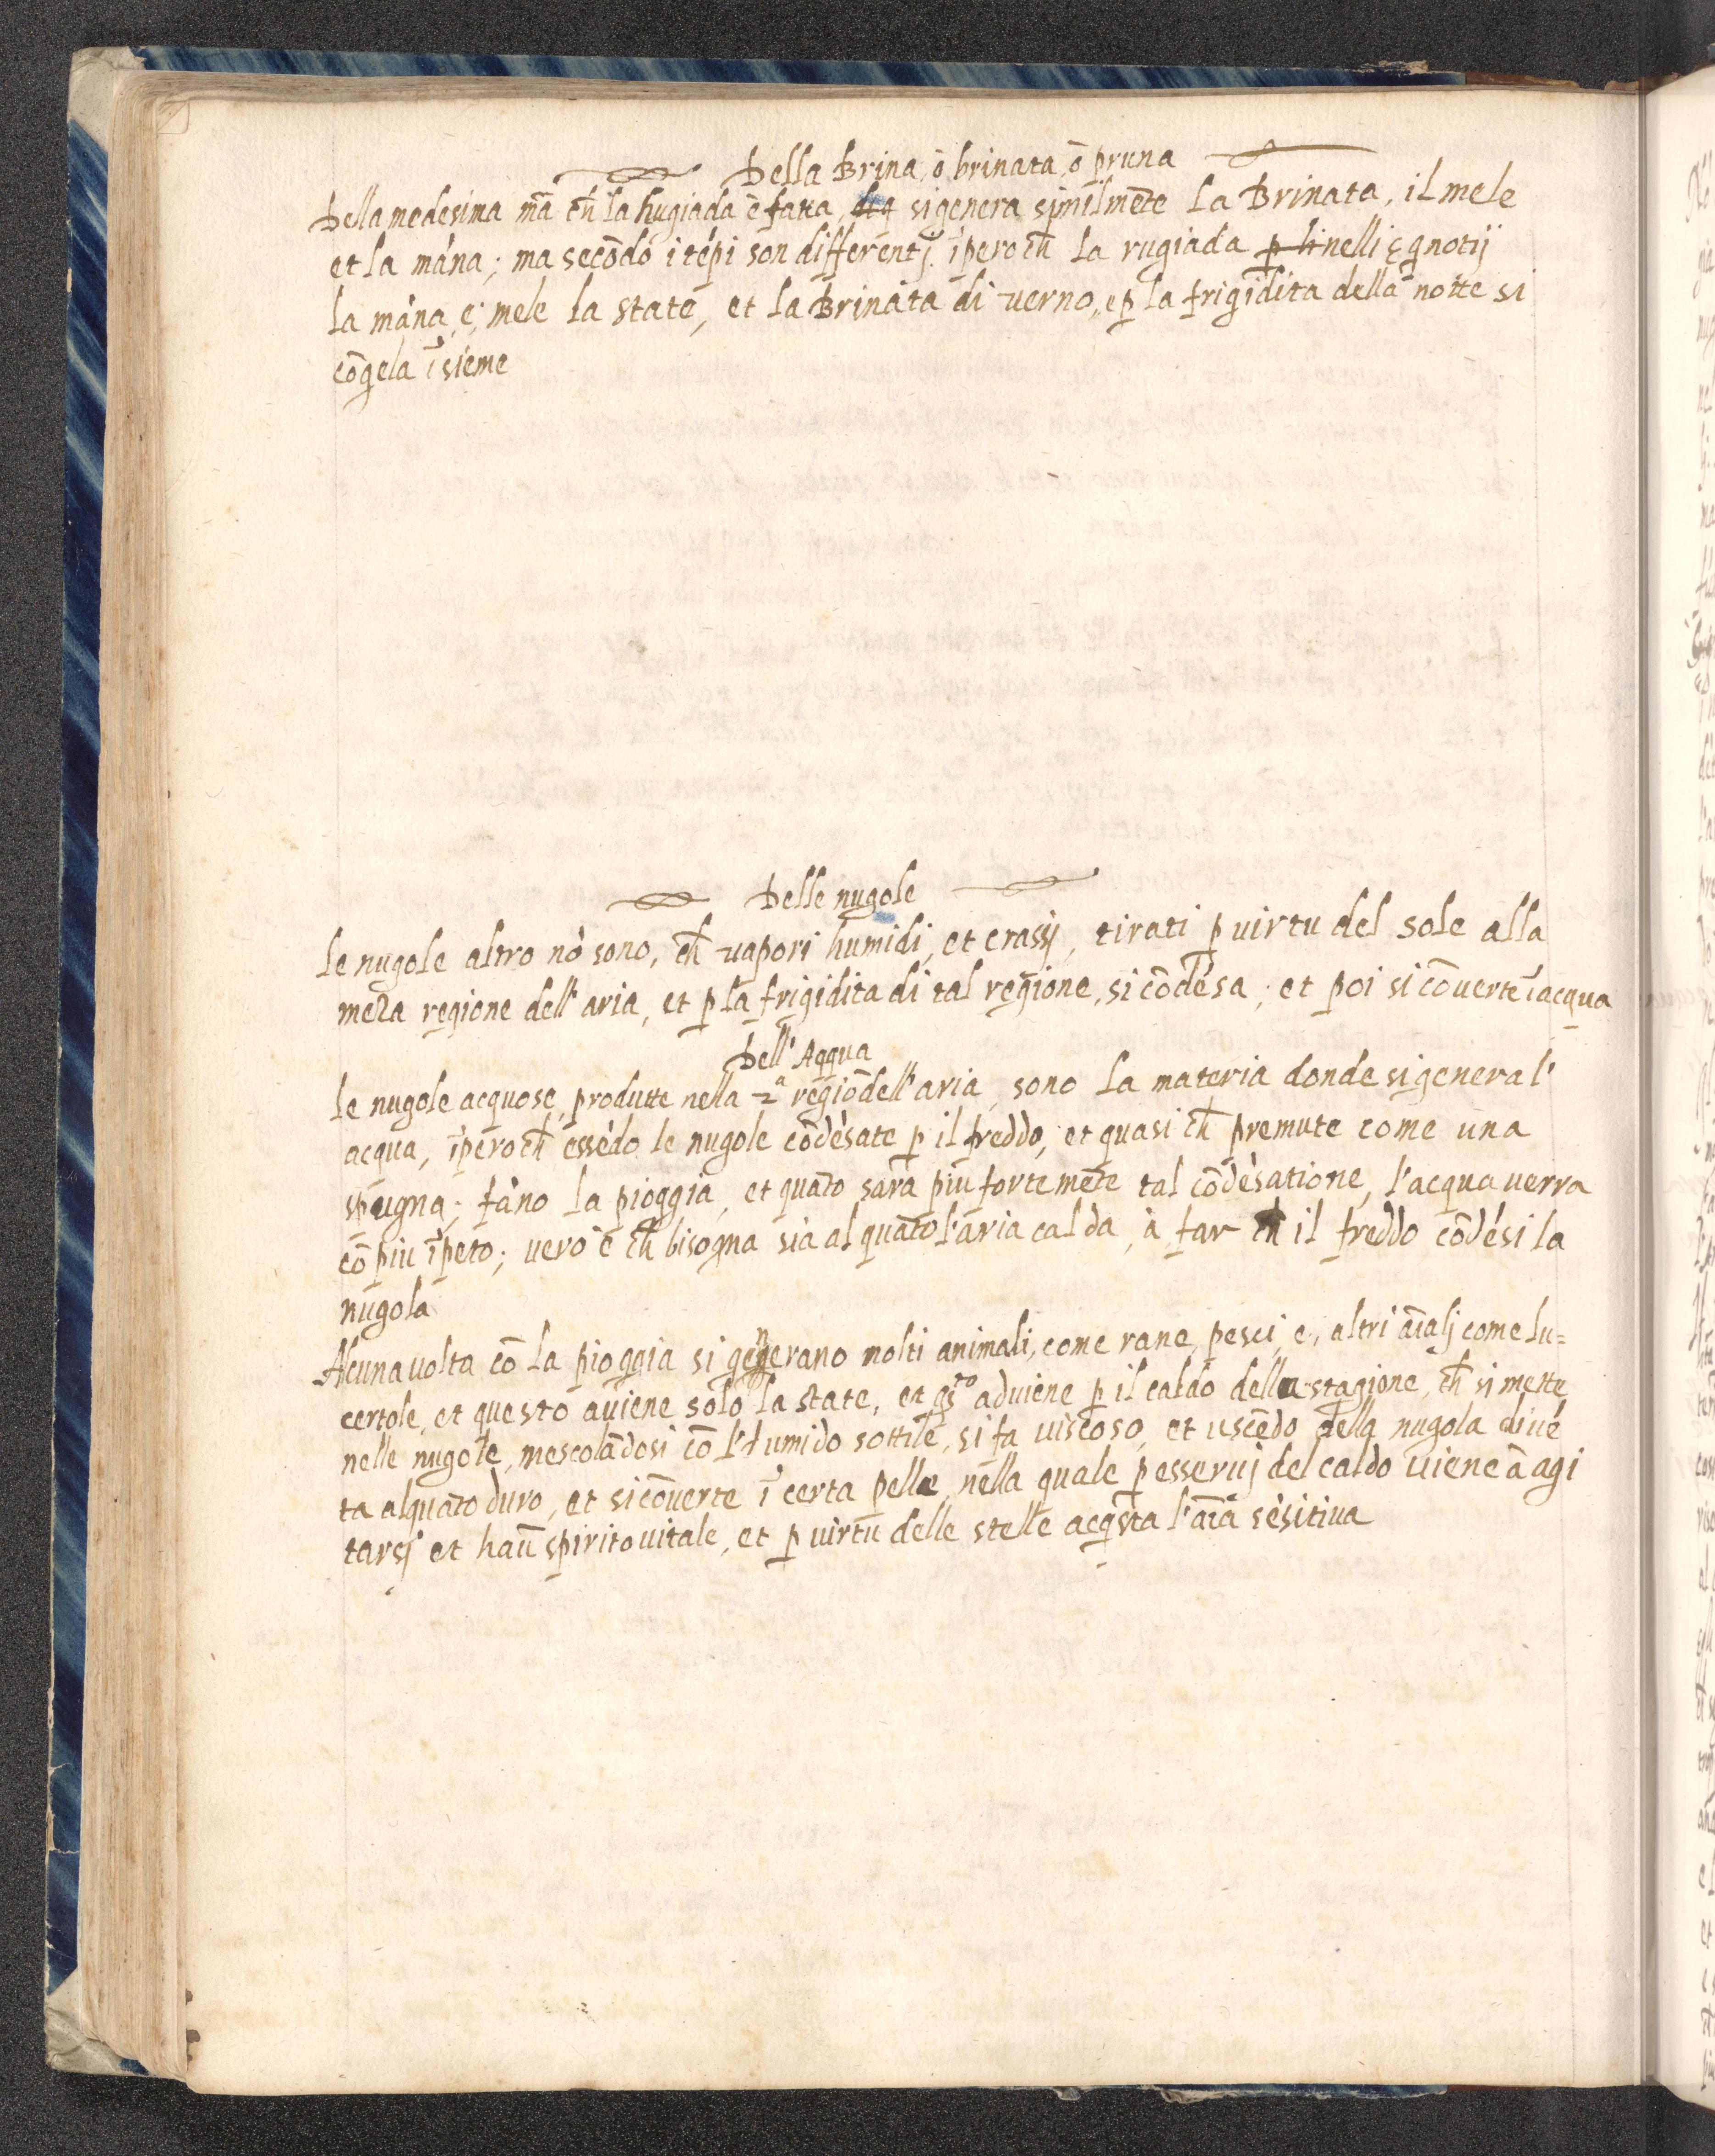 Della Brina, ò brinata, ò pruna
Della medesima mã ch̃ la hugiada è fatta, si genera similmẽte la Brinata, il mele
et la mána; ma secõdo i tẽpi son differentj. ĩperoch̃ la rugiada nelli egnotij
la mána, e, mele la state, et la Brinata di verno, e p̱ la frigidita della notte si
cõgela ĩsieme
Delle nugole
le nugole altro nõ sono, ch̃ vapori humidi, et crassj, tirati p̱ uirtu del sole alla
meza regione dell'aria, et p̱ la frigidita di tal regione, si cõdẽsa; et poi si cõuerte ĩ acqua
Dell'Aqqua
le nugole acquose, produtte nella 2ª regiõ dell'aria, sono la materia donde si genera l'
acqua, ĩperoch̃ essẽdo le nugole cõdẽsate p̱ il freddo, et quasi ch̃ premute come una
spugna; fãno la pioggia, et quãto sarà piu fortemẽte tal cõdẽsatione, l'acqua verra
cõ piu ĩpeto; uero è ch̃ bisogna sia alquãto l'aria calda, à far ch̃ il freddo cõdẽsi la
nugola
Alcuna uolta cõ la pioggia si generano molti animali, come rane, pesci, e, altri aĩalj come lu=
certole, et questo auiene solo la state, et q̃sto aduiene p̱ il caldo della stagione, ch̃ si mette
nelle nugole, mescolãdosi cõ l'humido sottile, si fa uiscoso, et uscẽdo della nugola diuẽ
ta alquãto duro, et si cõuerte ĩ certa pelle, nella quale p̱ esseruj del caldo uiene à agi
tarsj et haũ spirito uitale, et p̱ uirtu delle stelle acq̃sta l'aĩa sẽsitiua